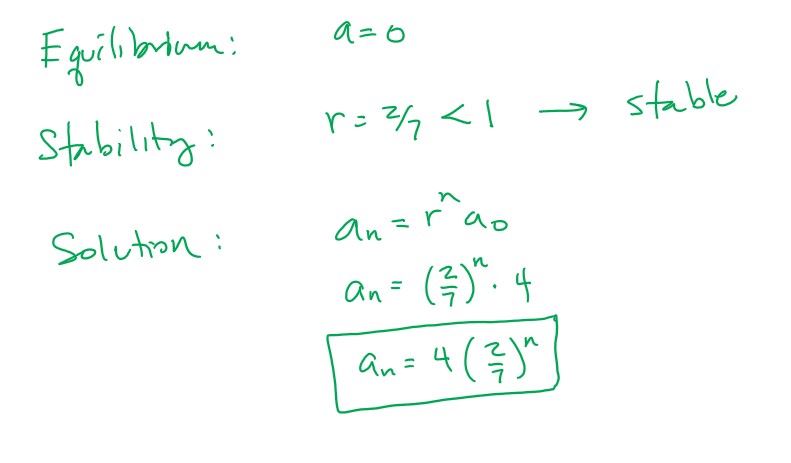 Equilibrium: a = 0
Stability: r = 2/7 < 1 → stable
Solution: aₙ = rⁿ a₀
aₙ = (2/7)ⁿ · 4
aₙ = 4 (2/7)ⁿ